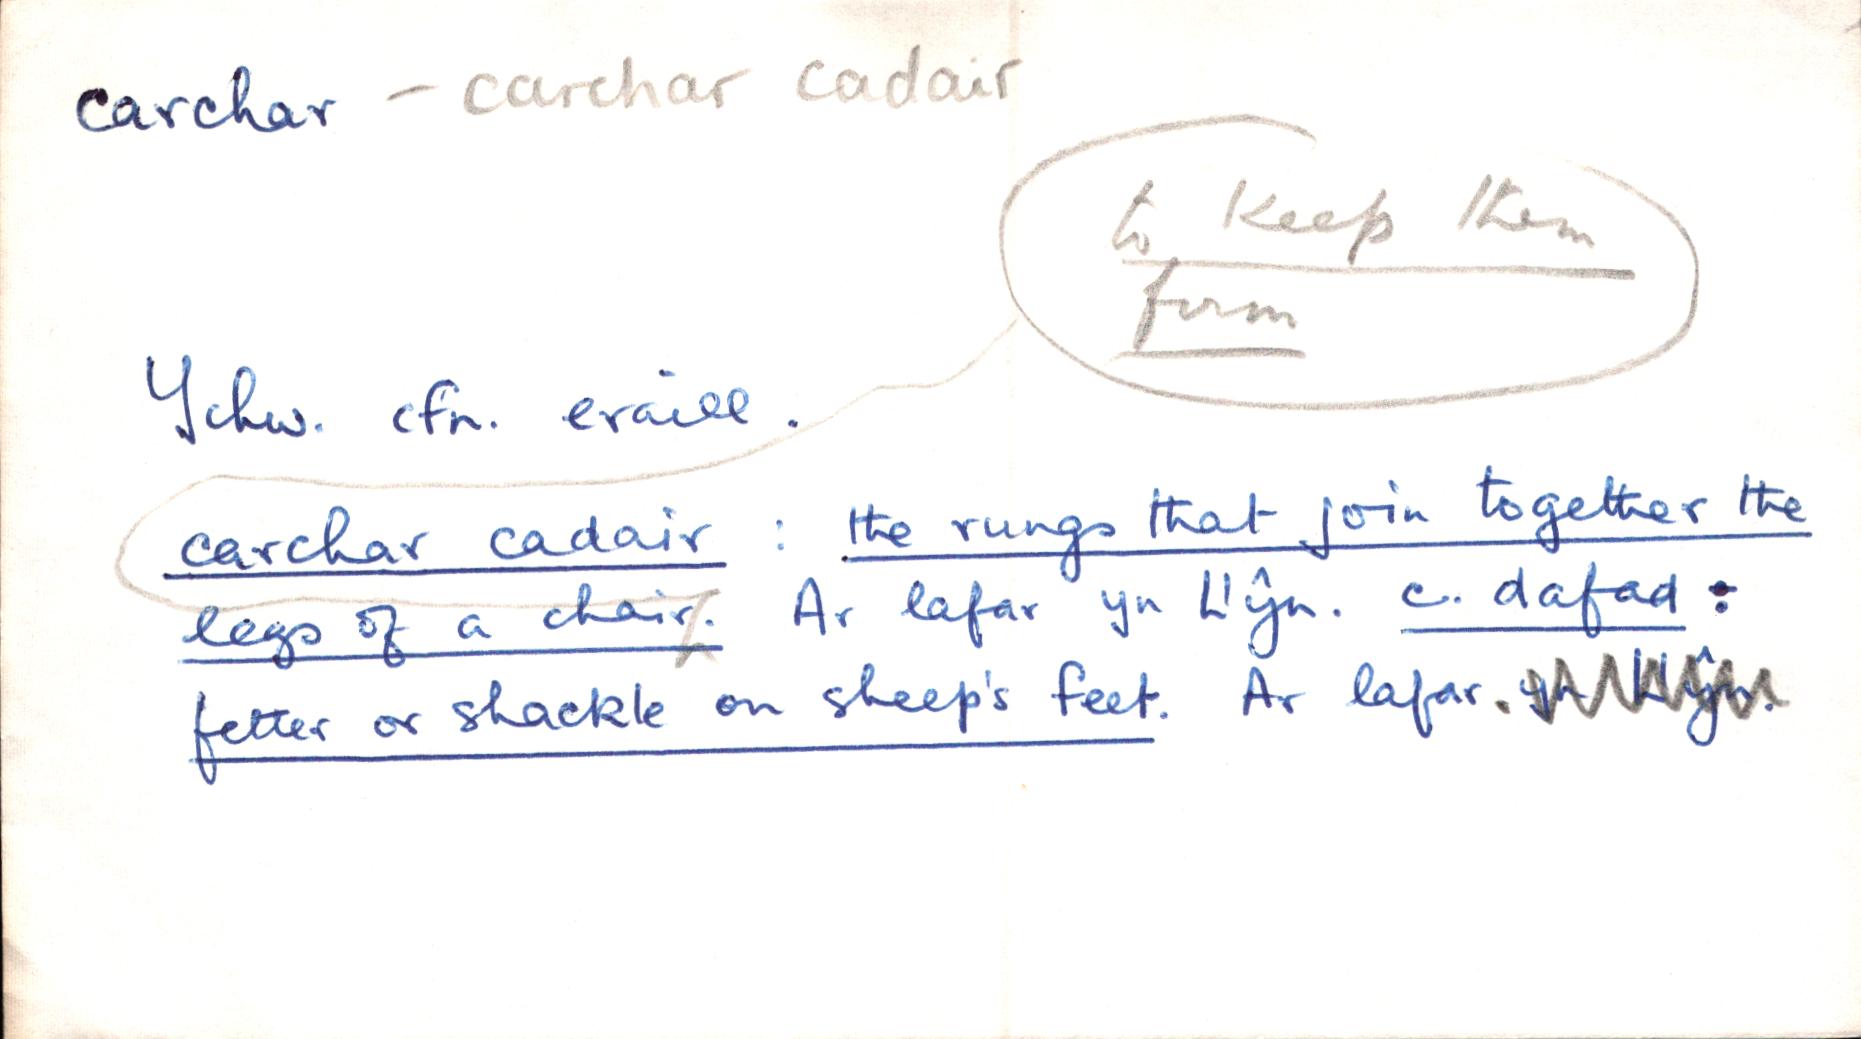 carchar - carchar cadair
to keep them
firm
Ychw. cfn. eraill.
carchar cadair : the rungs that join together the
legs of a chair. Ar lafar yn Llŷn. c. dafad :
fetter or shackle on sheep's feet. Ar lafar. yn Llŷn.